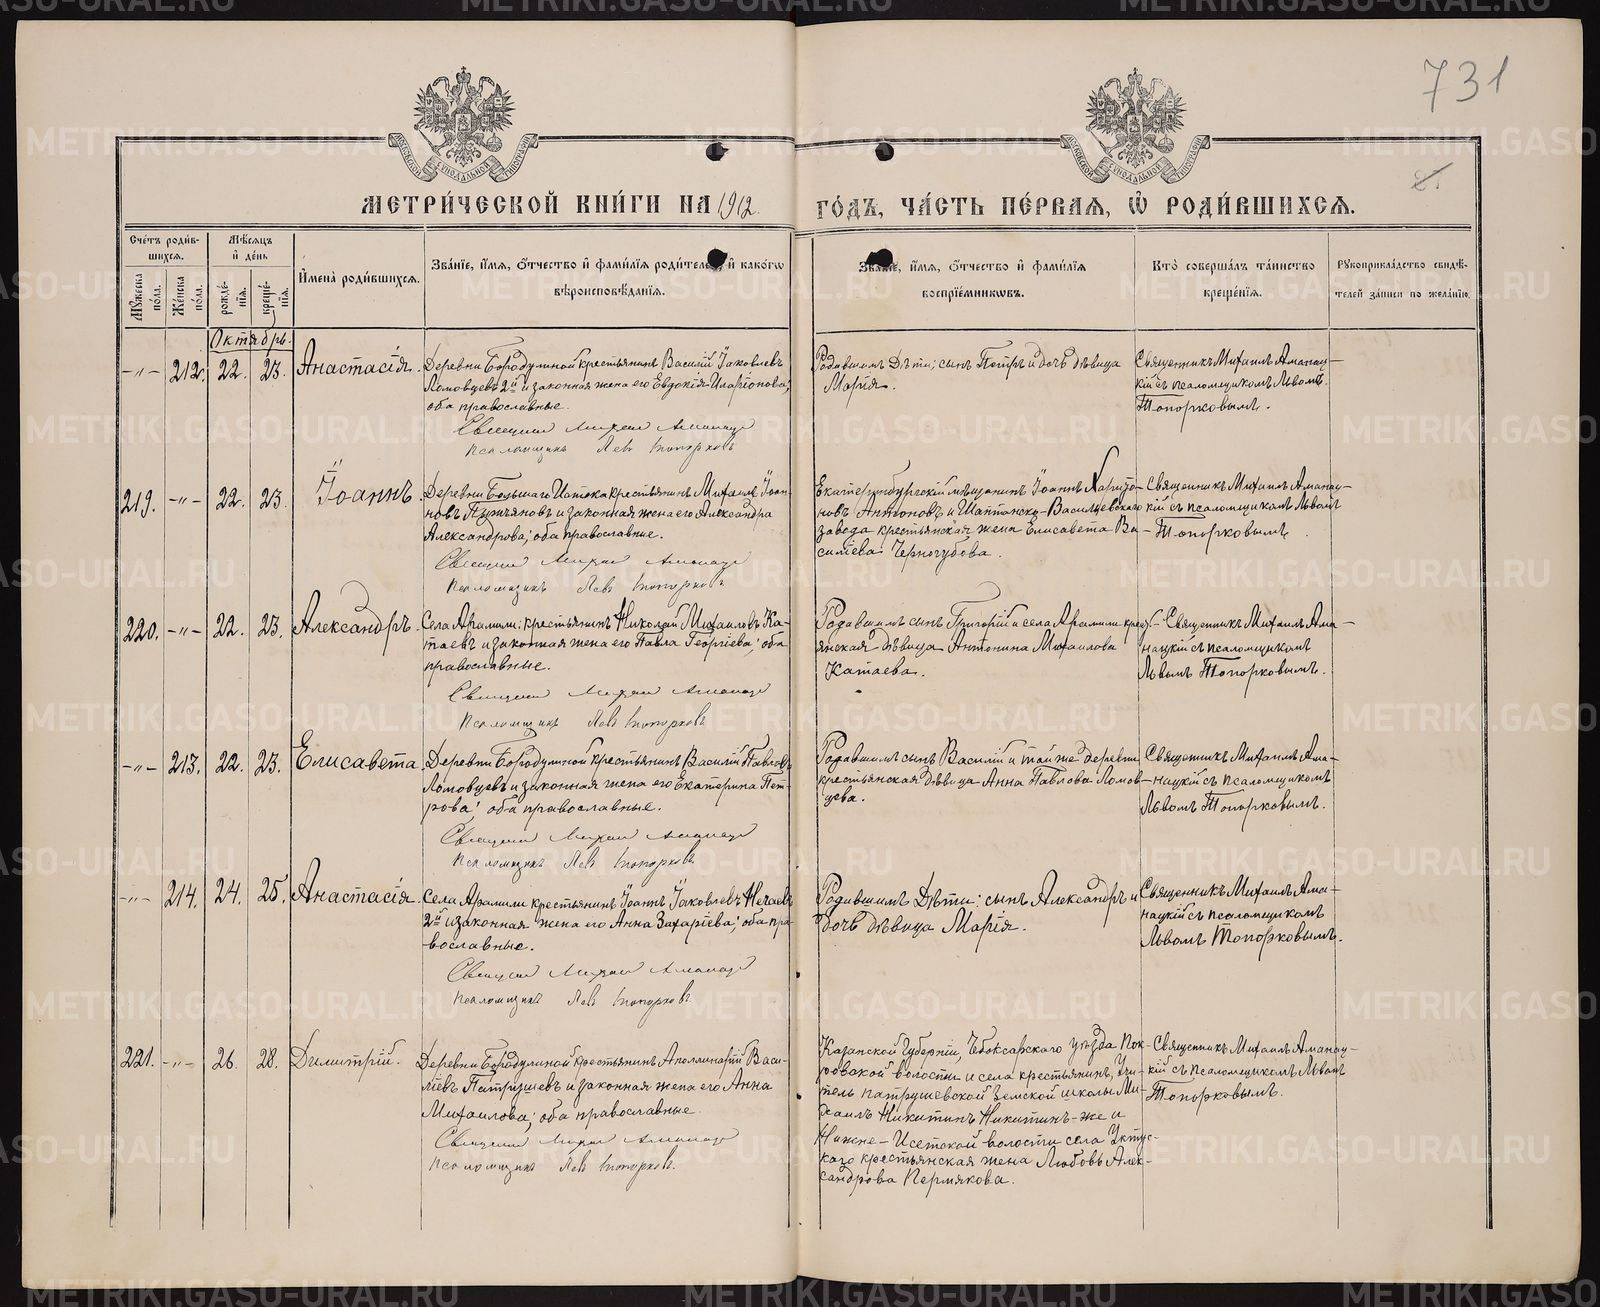 731
МЕТРИ́ЧЕСКОЙ КНИ́ГИ НА 1912 ГО́ДЪ, ЧА́СТЬ ПЕ́РВАЯ, Ѡ҆ РОДИ́ВШИХСѦ.
Сче́тъ роди́в-
шихсѧ.
Мꙋ́жеска по́ла.
Же́нска по́ла.
Мѣ́сѧцъ
и҆ де́нь
рожде́-нїѧ.
креще́-нїѧ.
И҆мена̀ роди́вшихсѧ.
Зва́нїе, и҆́мѧ, ѻ҆́тчество и҆ фами́лїѧ роди́телей, и҆ како́гѡ
вѣроисповѣ́данїѧ.
Зва́нїе, и҆́мѧ, ѻ҆́тчество и҆ фами́лїѧ
воспрїе́мникѡвъ.
Кто̀ соверша́лъ та́инство
креще́нїѧ.
Рꙋкоприкла́дство свидѣ́-
телей за́писи по жела́нїю.
Октябрь.
-"- 212. 22. 23. Анастасія.
Деревни Бородулиной крестьянинъ Василій Іаковлевъ
Ломовцевъ 2й и законная жена его Евдокія Иларіонова;
оба православные.
Священникъ Михаилъ Аманацкій
Псаломщикъ Левъ Топорковъ
Родившимъ Дѣти: сынъ Петръ и дочь дѣвица
Марія.
Священникъ Михаилъ Аманац-
кій съ псаломщикомъ Львомъ
Топорковымъ.
219. -"- 22. 23. Іоаннъ.
Деревни Большаго Истока крестьянинъ Михаилъ Іоан-
новъ Пужняновъ и законная жена его Александра
Александрова; оба православные.
Священникъ Михаилъ Аманацкій
Псаломщикъ Левъ Топорковъ
Екатеринбургскій мѣщанинъ Іоаннъ Харито-
новъ Антоновъ и Шайтанско-Васильевскаго
завода крестьянская жена Елисавета Ва-
силіева Черногубова.
Священникъ Михаилъ Аманац-
кій съ псаломщикомъ Львомъ
Топорковымъ.
220. -"- 22. 23. Александръ.
Села Арамили: крестьянинъ Николай Михаиловъ Ка-
таевъ и законная жена его Павла Георгіева; оба
православные.
Священникъ Михаилъ Аманацкій
Псаломщикъ Левъ Топорковъ
Родившимъ сынъ Григорій и села Арамили крест-
янская дѣвица Антонина Михаилова
Катаева.
Священникъ Михаилъ Ама-
нацкій съ псаломщикомъ
Львомъ Топорковымъ.
-"- 213. 22. 23. Елисавета
Деревни Бородулиной крестьянинъ Василій Павловъ
Ломовцевъ и законная жена его Екатерина Пет-
рова; оба православные.
Священникъ Михаилъ Аманацкій
Псаломщикъ Левъ Топорковъ
Родившимъ сынъ Василій и той же деревни
крестьянская дѣвица Анна Павлова Ломов-
цева.
Священникъ Михаилъ Ама-
нацкій съ псаломщикомъ
Львомъ Топорковымъ.
-"- 214. 24. 25. Анастасія.
Села Арамили крестьянинъ Іоаннъ Іаковлевъ Нечаевъ
2й и законная жена его Анна Захаріева; оба пра-
вославные.
Священникъ Михаилъ Аманацкій
Псаломщикъ Левъ Топорковъ
Родившимъ Дѣти: сынъ Александръ и
дочь дѣвица Марія.
Священникъ Михаилъ Ама-
нацкій съ псаломщикомъ
Львомъ Топорковымъ.
221. -"- 26. 28. Димитрій.
Деревни Бородулиной крестьянинъ Аполлинарій Васи-
ліевъ Патрушевъ и законная жена его Анна
Михаилова; оба православные.
Священникъ Михаилъ Аманацкій
Псаломщикъ Левъ Топорковъ.
Казанской Губерніи, Чебоксарскаго уѣзда Пок-
ровской волости и села крестьянинъ, Учи-
тель патрушевской земской школы Ми-
хаилъ Никитинъ Никитинъ-же и
Нижне-Исетской волости села Уктус-
скаго крестьянская жена Любовь Алек-
сандрова Пермякова.
Священникъ Михаилъ Аманац-
кій съ псаломщикомъ Львомъ
Топорковымъ.
METRIKI.GASO-URAL.RU